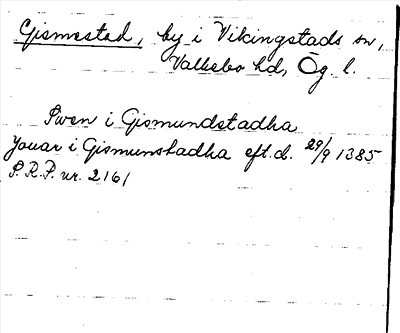 Gismestad, by i Vikingstads sn,
Valkebo hd, Ög. l.
Swen i Gismundstadha
Jouar i Gismunstadha eft. d. 29/9 1385
S.R.P. nr. 2161